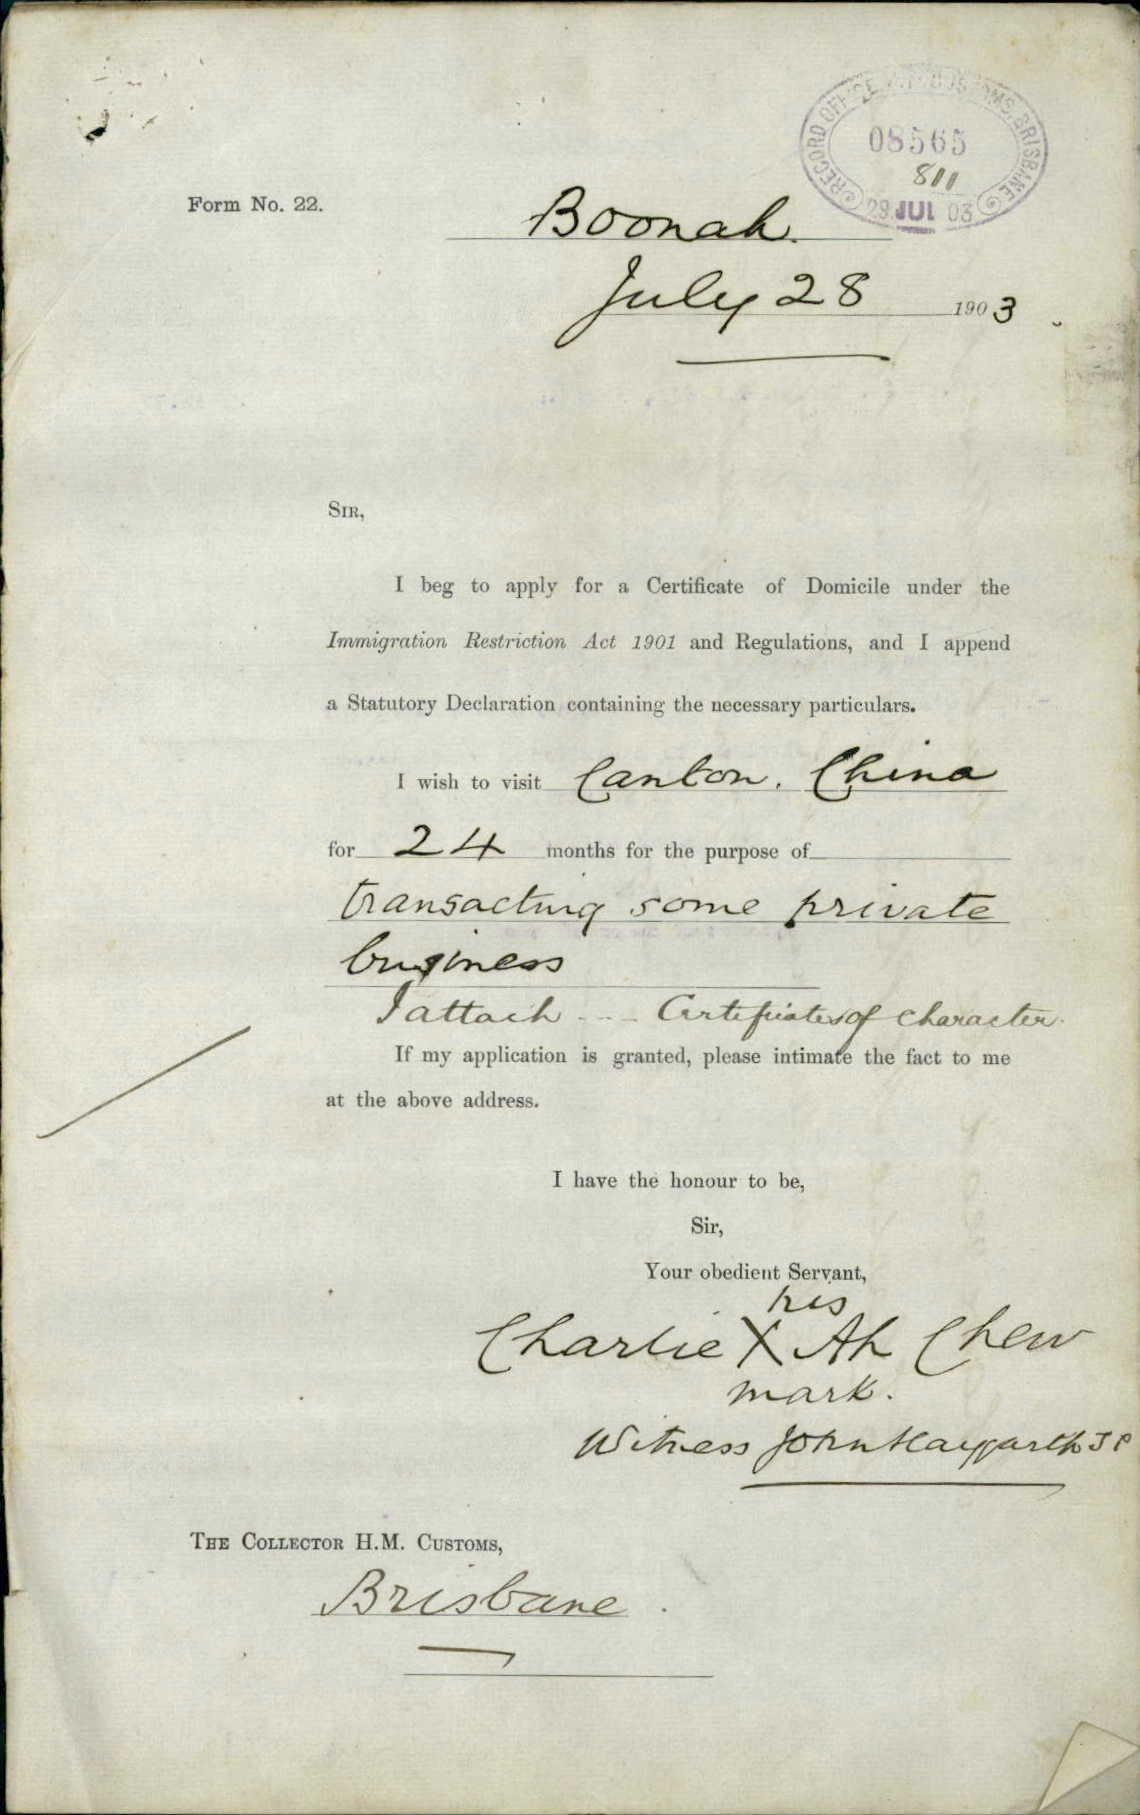 RECORD OFFICE H.M. CUSTOMS, BRISBANE
08565
811
29 JUL 03
Form No. 22.
Boonah.
July 28 1903
SIR,
I beg to apply for a Certificate of Domicile under the
Immigration Restriction Act 1901 and Regulations, and I append
a Statutory Declaration containing the necessary particulars.
I wish to visit Canton. China
for 24 months for the purpose of
transacting some private
business
I attach --- Certificates of character.
If my application is granted, please intimate the fact to me
at the above address.
I have the honour to be,
Sir,
Your obedient Servant,
his
Charlie X Ah Chew
mark.
Witness John Haygarth JP
THE COLLECTOR H.M. CUSTOMS,
Brisbane.